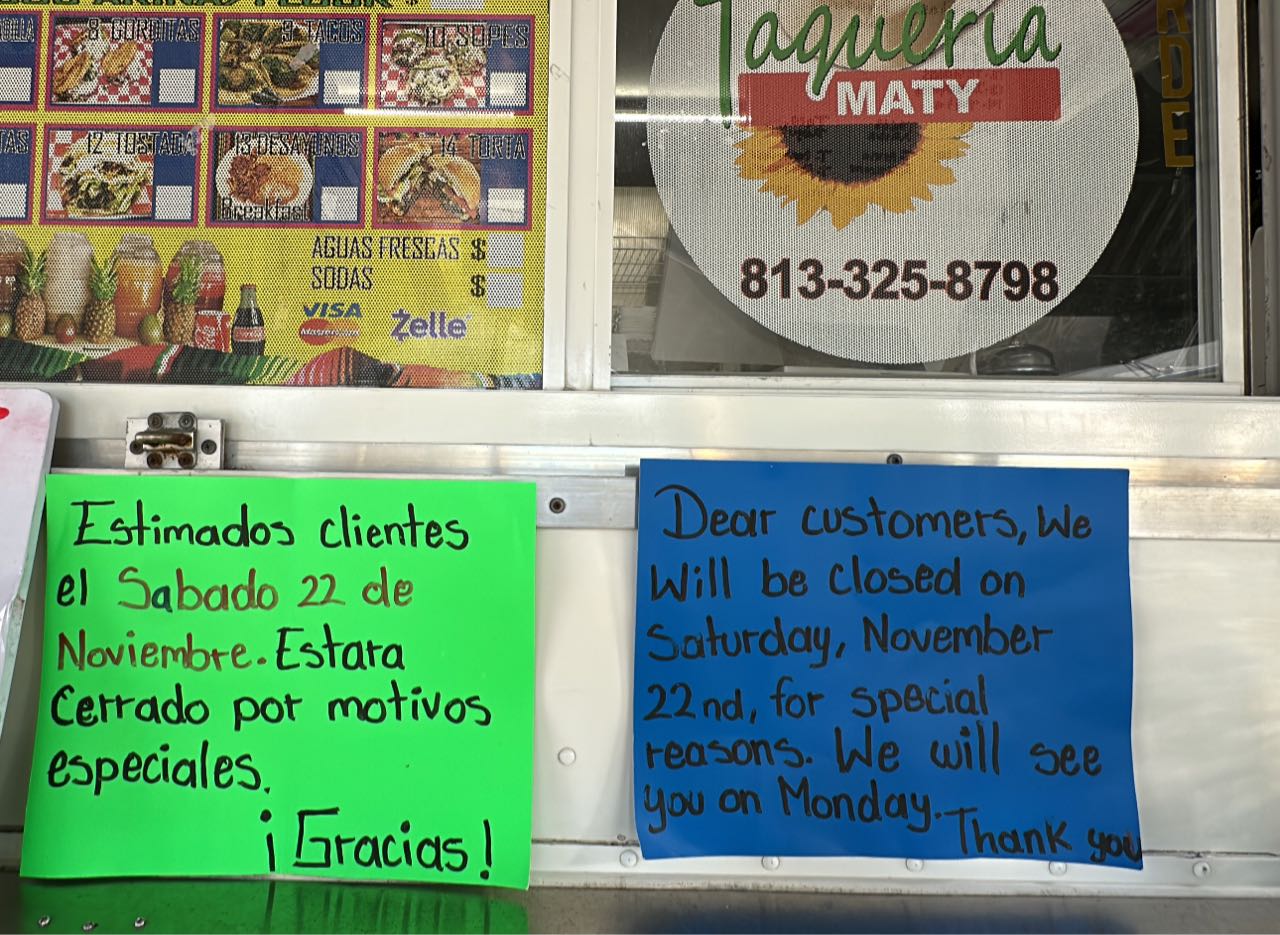 8 GORDITAS
9 TACOS
10 SOPES
12 TOSTADA
13 DESAYUNOS
Breakfast
14 TORTA
AGUAS FRESCAS $
SODAS $
VISA
MasterCard
Zelle
Taqueria
MATY
813-325-8798
Estimados clientes
el Sabado 22 de
Noviembre. Estara
Cerrado por motivos
especiales.
¡Gracias!
Dear customers, We
Will be closed on
Saturday, November
22nd, for special
reasons. We will see
you on Monday.
Thank you